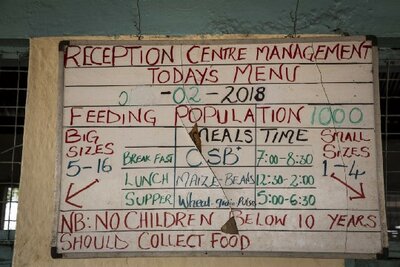 RECEPTION CENTRE MANAGEMENT
TODAYS MENU
-02-2018
FEEDING POPULATION 1000
BIG SIZES 5-16
MEALS TIME
SMALL SIZES 1-4
BREAK FAST CSB+ 7:00-8:30
LUNCH MAIZE-BEANS 12:30-2:00
SUPPER Wheat- 5:00-6:30
NB: NO CHILDREN BELOW 10 YEARS
SHOULD COLLECT FOOD